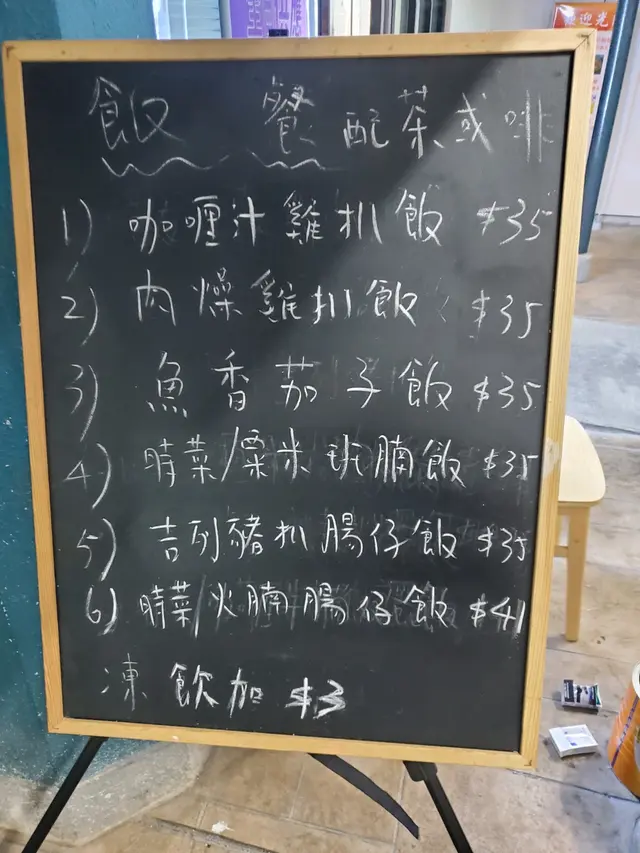 飯 餐 配茶或啡
1) 咖喱汁雞扒飯 $35
2) 肉燥雞扒飯 $35
3) 魚香茄子飯 $35
4) 時菜/粟米班腩飯 $35
5) 吉列豬扒腸仔飯 $35
6) 時菜/火腩腸仔飯 $41
凍飲加 $3
迎光